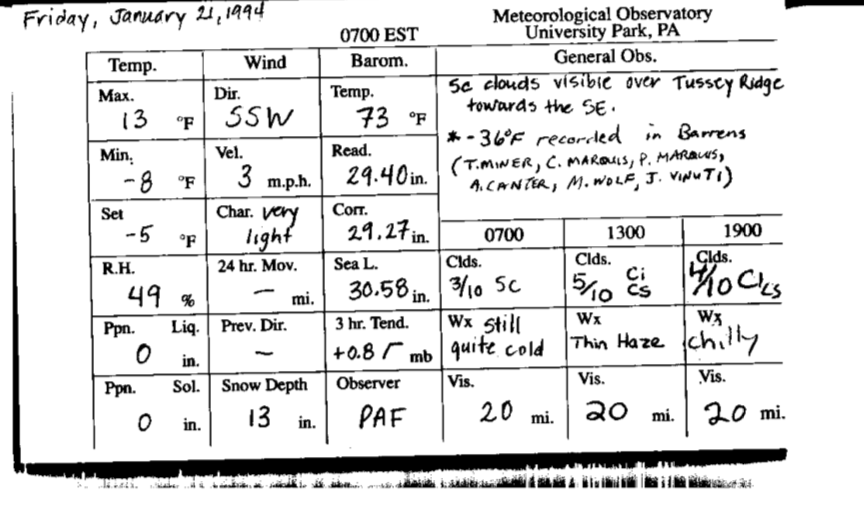 Friday, January 21, 1994
Meteorological Observatory
0700 EST University Park, PA
Temp. Wind Barom. General Obs.
Max. Dir. Temp. Sc clouds visible over Tussey Ridge
13 °F SSW 73 °F towards the SE.
* -36°F recorded in Barrens
Min. Vel. Read. (T. MINER, C. MARQUIS, P. MARQUIS,
-8 °F 3 m.p.h. 29.40 in. A. CANTER, M. WOLF, J. VINUTI)
Set Char. very Corr.
-5 °F light 29.27 in. 0700 1300 1900
R.H. 24 hr. Mov. Sea L. Clds. Clds. Clds.
49 % — mi. 30.58 in. 3/10 Sc 5/10 Ci Cs 4/10 Ci Cs
Ppn. Liq. Prev. Dir. 3 hr. Tend. Wx still Wx Wx
0 in. — +0.8 mb quite cold Thin Haze chilly
Ppn. Sol. Snow Depth Observer Vis. Vis. Vis.
0 in. 13 in. PAF 20 mi. 20 mi. 20 mi.